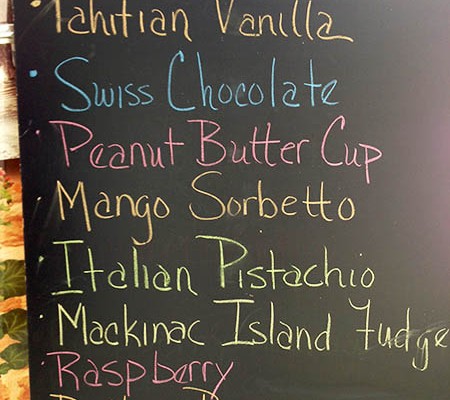 Tahitian Vanilla
Swiss Chocolate
Peanut Butter Cup
Mango Sorbetto
Italian Pistachio
Mackinac Island Fudge
Raspberry